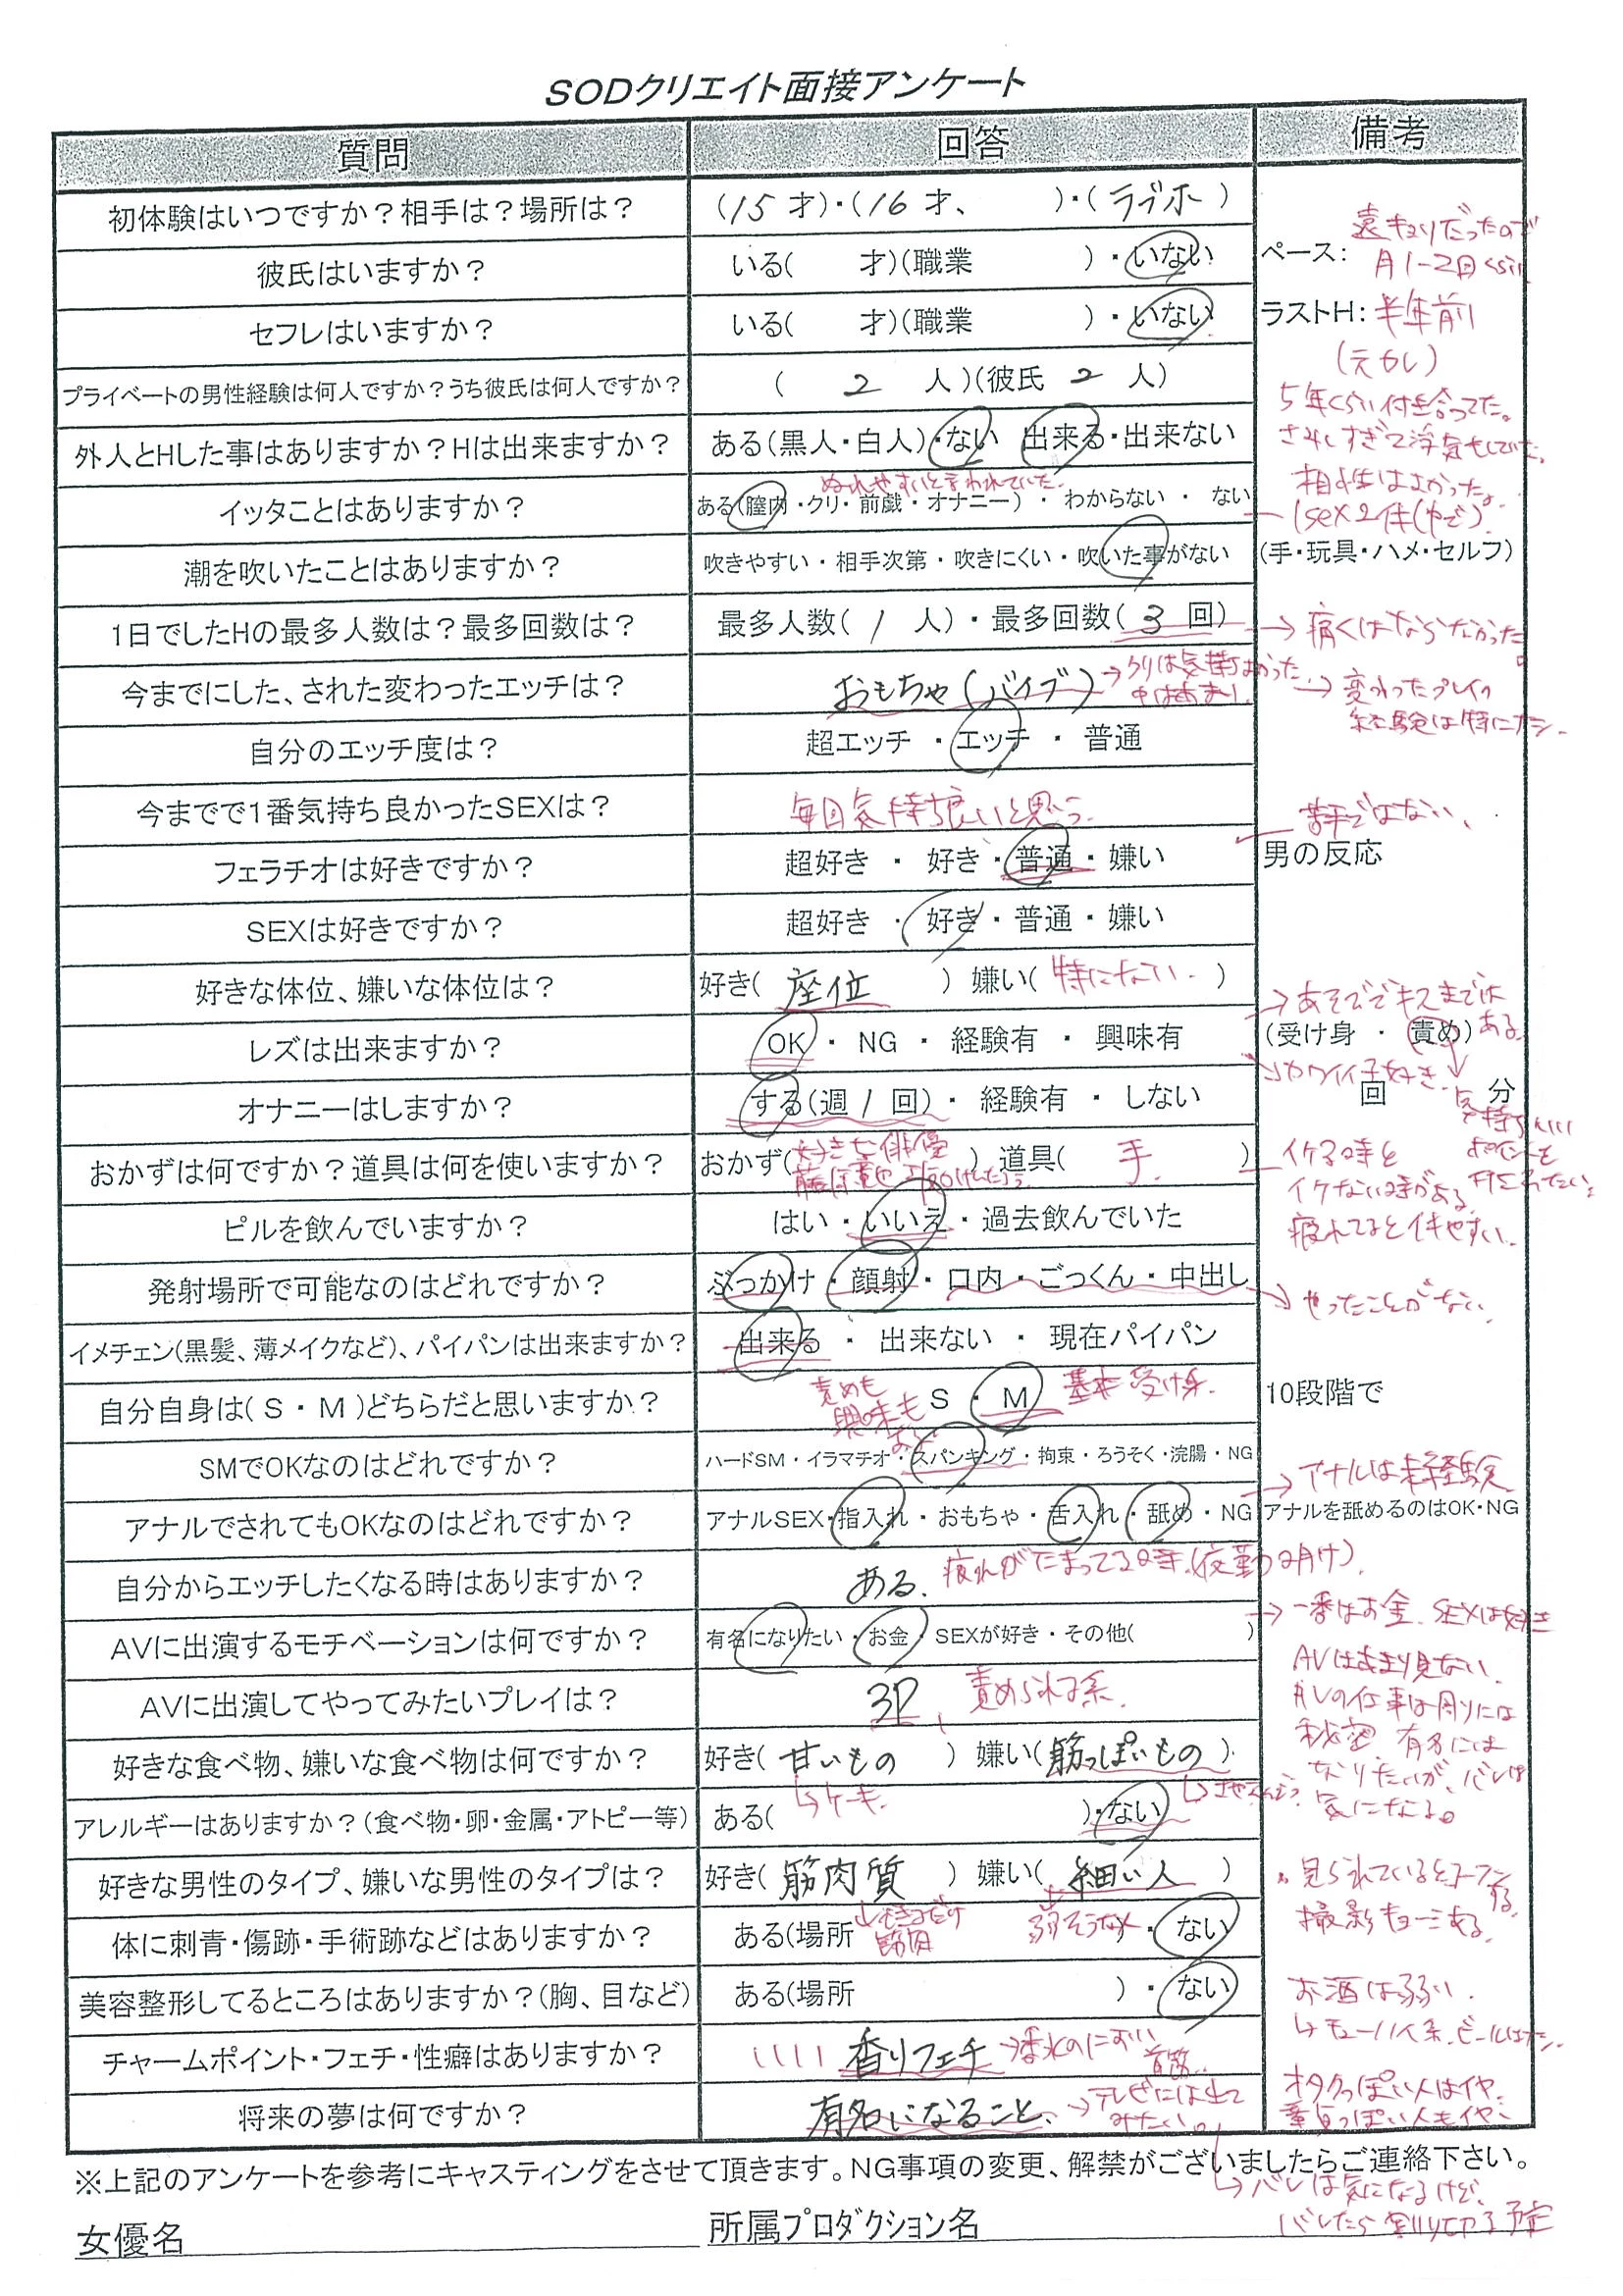 SODクリエイト面接アンケート
質問 回答 備考
初体験はいつですか？相手は？場所は？ (15才)・(16才、 )・(ラブホ)
遠キョリだったので
彼氏はいますか？ いる( 才)(職業 )・いない ペース：月1-2回くらい
セフレはいますか？ いる( 才)(職業 )・いない ラストH：半年前
(元カレ)
プライベートの男性経験は何人ですか？うち彼氏は何人ですか？ ( 2 人)(彼氏 2 人)
5年くらい付き合ってた。
外人とHした事はありますか？Hは出来ますか？ ある(黒人・白人)・ない 出来る・出来ない
さみしすぎて浮気もしていた。
ぬれやすいと言われていた。
相性はよかった。
イッタことはありますか？ ある(膣内・クリ・前戯・オナニー)・わからない・ない
潮を吹いたことはありますか？ 吹きやすい・相手次第・吹きにくい・吹いた事がない (手・玩具・ハメ・セルフ)
1日でしたHの最多人数は？最多回数は？ 最多人数( 1 人)・最多回数( 3 回) →痛くはならなかった。
今までにした、された変わったエッチは？ おもちゃ(バイブ) →クリは気持ちよかった
→変わったプレイの
経験は特にナシ。
自分のエッチ度は？ 超エッチ・エッチ・普通
今までで1番気持ち良かったSEXは？ 毎回気持ち良いと思う。
苦手ではない、
フェラチオは好きですか？ 超好き・好き・普通・嫌い 男の反応
SEXは好きですか？ 超好き・好き・普通・嫌い
好きな体位、嫌いな体位は？ 好き( 座位 ) 嫌い( 特にない。 )
→あそびでキスまでは
ある。
レズは出来ますか？ OK・NG・経験有・興味有 (受け身・責め)
→カワイイ子好き。
オナニーはしますか？ する(週 1 回)・経験有・しない 回 分
気持ちいい
ポイントを
おかずは何ですか？道具は何を使いますか？ おかず(好きな俳優 ) 道具( 手. )
イケる時と
イケない時がある。
疲れてるとイキやすい。
ピルを飲んでいますか？ はい・いいえ・過去飲んでいた
発射場所で可能なのはどれですか？ ぶっかけ・顔射・口内・ごっくん・中出し →やったことがない。
イメチェン(黒髪、薄メイクなど)、パイパンは出来ますか？ 出来る・出来ない・現在パイパン
自分自身は(S・M)どちらだと思いますか？ S・M 基本受け身。 10段階で
責めも
興味も
あり
SMでOKなのはどれですか？ ハードSM・イラマチオ・スパンキング・拘束・ろうそく・浣腸・NG
→アナルは未経験
アナルでされてもOKなのはどれですか？ アナルSEX・指入れ・おもちゃ・舌入れ・舐め・NG アナルを舐めるのはOK・NG
自分からエッチしたくなる時はありますか？ ある. 疲れがたまってる時。(夜勤明け)。
→一番はお金. SEXは好き
AVに出演するモチベーションは何ですか？ 有名になりたい・お金・SEXが好き・その他( )
AVはあまり見ない.
AVに出演してやってみたいプレイは？ 3P、責められる系.
AVの仕事は周りには
秘密 有名には
なりたいが、バレは
気になる。
好きな食べ物、嫌いな食べ物は何ですか？ 好き( 甘いもの ) 嫌い(筋っぽいもの)
↳ケーキ.
アレルギーはありますか？(食べ物・卵・金属・アトピー等) ある( )・ない
好きな男性のタイプ、嫌いな男性のタイプは？ 好き( 筋肉質 ) 嫌い( 細い人 )
見られているとコーフン
する。
撮影キョーミある。
体に刺青・傷跡・手術跡などはありますか？ ある(場所 ・ない
できるだけ
筋肉
弱そうな人
美容整形してるところはありますか？(胸、目など) ある(場所 )・ない
お酒は弱い.
↳チューハイ系. ビールはナシ.
チャームポイント・フェチ・性癖はありますか？ 香りフェチ →香水のにおい
首筋.
オタクっぽい人はイヤ.
童貞っぽい人もイヤ.
将来の夢は何ですか？ 有名になること. →テレビには出て
みたい。
※上記のアンケートを参考にキャスティングをさせて頂きます。NG事項の変更、解禁がございましたらご連絡下さい。
↳バレは気になるけど、
バレたら割り切る予定
女優名 所属プロダクション名